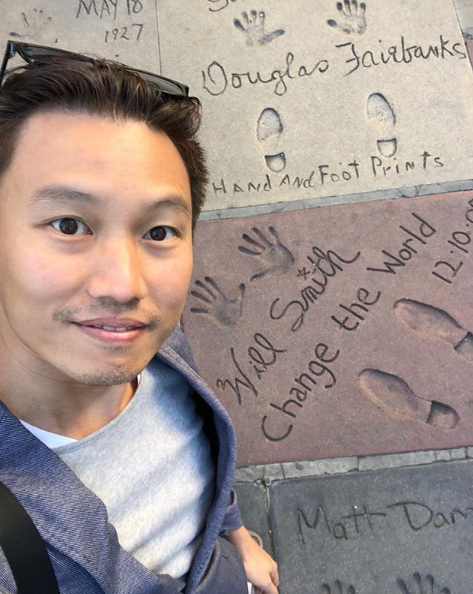 MAY 18
1927
Douglas Fairbanks
Hand And Foot Prints
Will Smith
Change the World
12·10·
Matt Dam